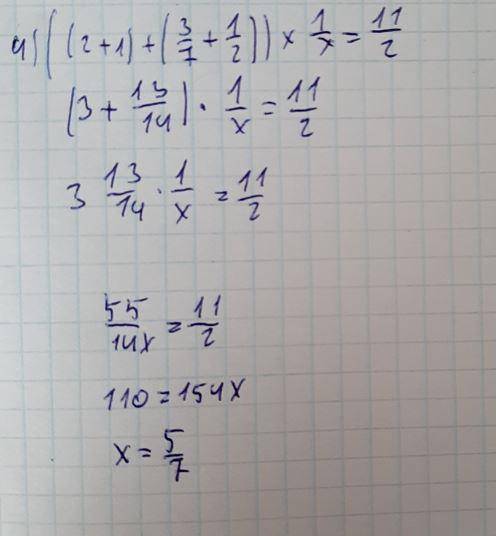 4) ((2+1)+(3/7+1/2)) × 1/x = 11/2
(3+13/14) · 1/x = 11/2
3 13/14 · 1/x = 11/2
55/14x = 11/2
110=154x
x=5/7